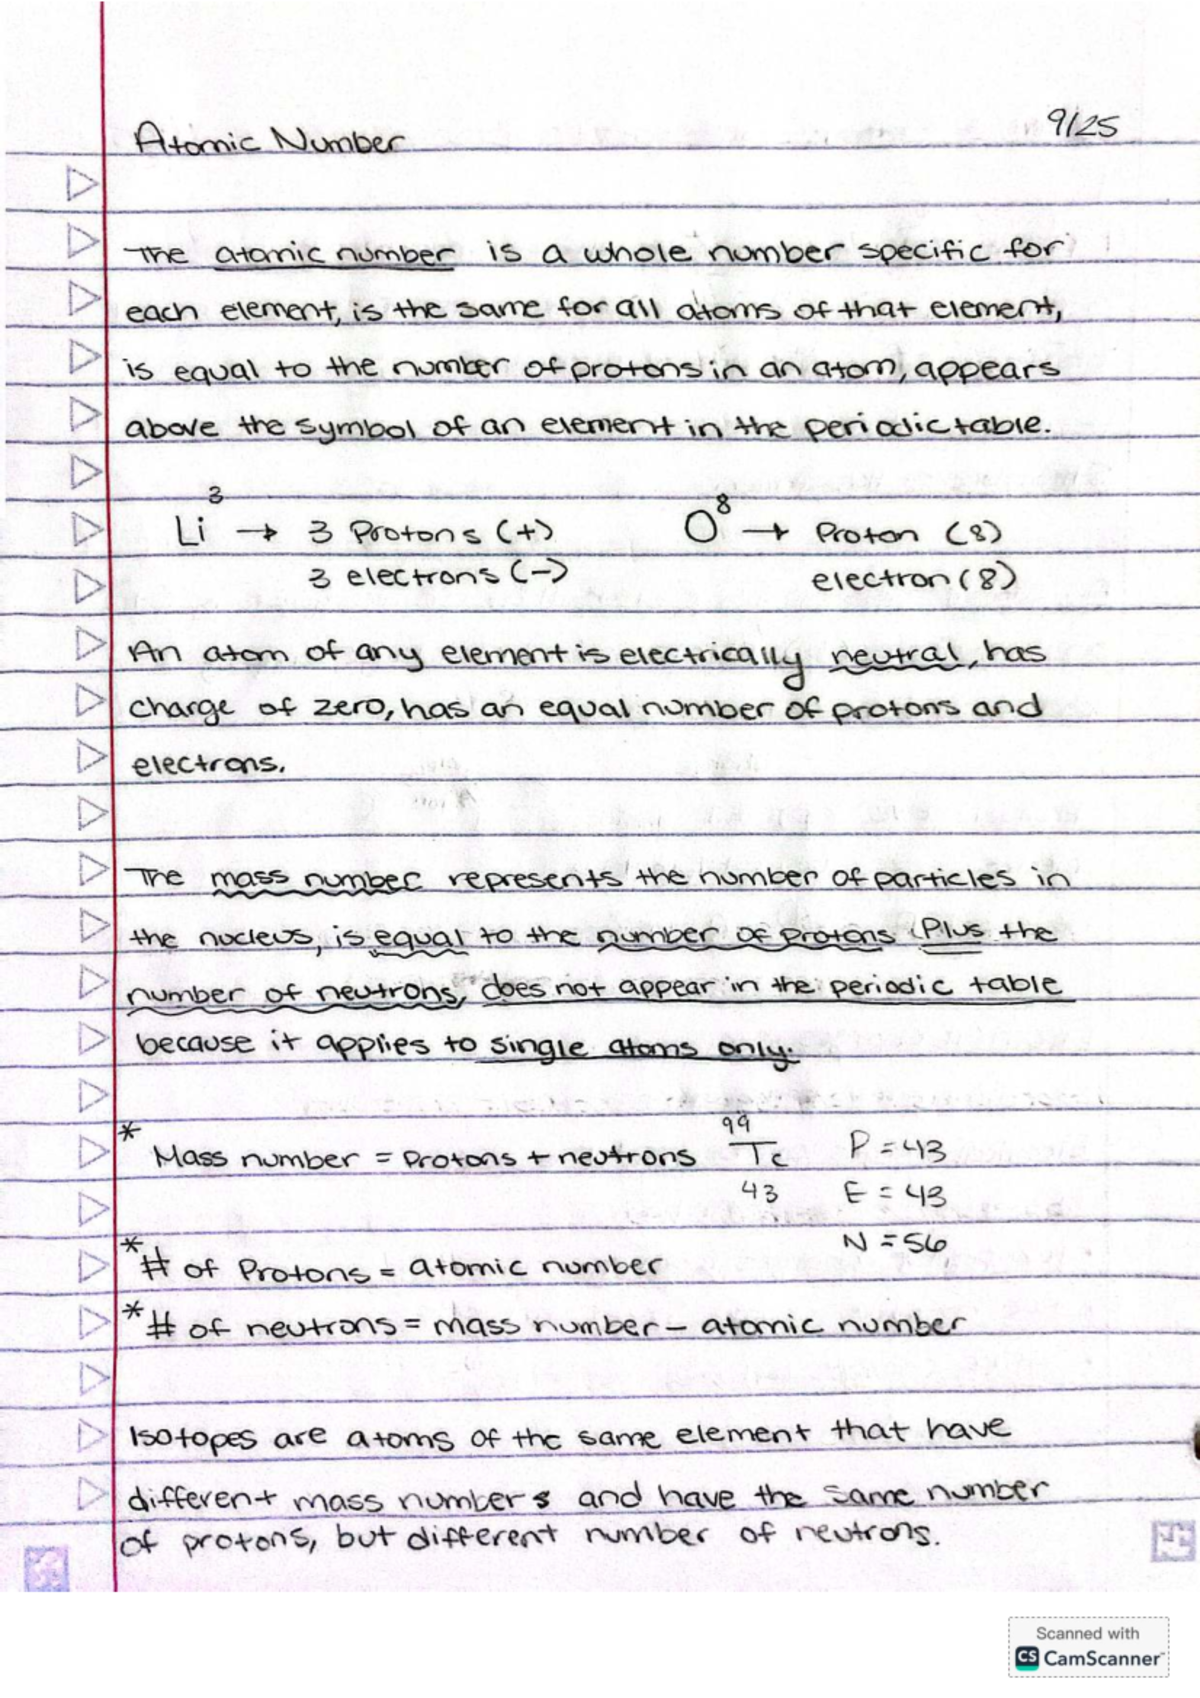 Atomic Number 9/25
The atomic number is a whole number specific for
each element, is the same for all atoms of that element,
is equal to the number of protons in an atom, appears
above the symbol of an element in the periodic table.
Li³ → 3 Protons (+) O⁸ → Proton (8)
3 electrons (-) electron (8)
An atom of any element is electrically neutral, has
charge of zero, has an equal number of protons and
electrons.
The mass number represents the number of particles in
the nucleus, is equal to the number of protons (Plus the
number of neutrons, does not appear in the periodic table
because it applies to single atoms only.
99
* Mass number = Protons + neutrons Tc P = 43
43 E = 43
N = 56
* # of Protons = atomic number
* # of neutrons = mass number - atomic number
Isotopes are atoms of the same element that have
different mass numbers and have the same number
of protons, but different number of neutrons.
Scanned with
CS CamScanner